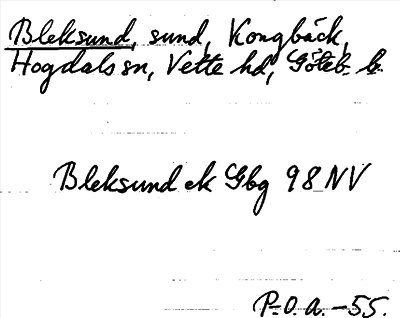 Bleksund, sund, Kongbäck,
Hogdals sn, Vette hd, Göteb. b.
Bleksund ek Gbg 98 NV
P.O.A. -55.